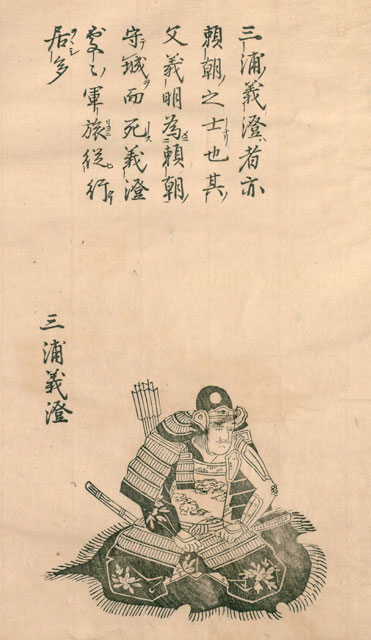 三浦義澄者亦
頼朝之士也其
父義明為頼朝
守城而死義澄
屡〻軍旅従行
居多
三浦義澄